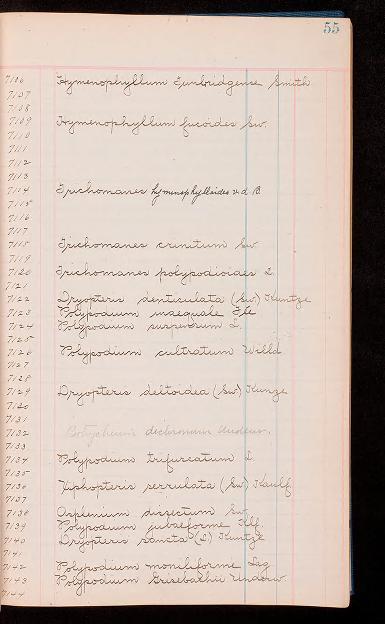 55
7106 Hymenophyllum Tunbridgense Smith
7107
7108
7109 Hymenophyllum fucoides Sw.
7110
7111
7112
7113
7114 Trichomanes hymenophylloides v.d.B.
7115
7116
7117
7118 Trichomanes crinitum Sw
7119
7120 Trichomanes polypodioides L.
7121
7122 Dryopteris denticulata (Sw) Kuntze
7123 Polypodium inaequale Fée
7124 Polypodium suspensum L.
7125
7126 Polypodium cultratum Willd
7127
7128
7129 Dryopteris deltoidea (Sw) Kunze
7130
7131
7132 Underw.
7133
7134 Polypodium trifurcatum L
7135
7136 Xiphopteris serrulata (Sw) Kaulf
7137
7138 Asplenium dissectum Sw
7139 Polypodium jubaeforme Klf
7140 Dryopteris sancta (L) Kuntze
7141
7142 Polypodium moniliforme Lag
7143 Polypodium Grisebachii Underw.
7144